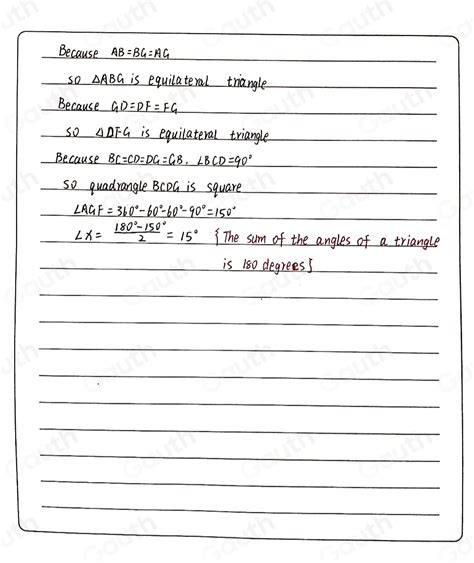 Because AB=BG=AG
so △ABG is equilateral triangle
Because GD=DF=FG
so △DFG is equilateral triangle
Because BC=CD=DG=GB, ∠BCD=90°
so quadrangle BCDG is square
∠AGF=360°-60°-60°-90°=150°
∠x= (180°-150°)/2 = 15° {The sum of the angles of a triangle
is 180 degrees}